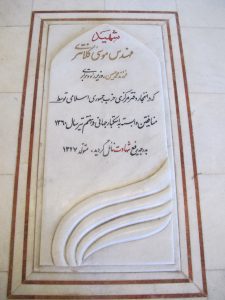 شهید
مهندس موسی کلانتری
فرزند
که در انفجار دفتر مرکزی حزب جمهوری اسلامی توسط
منافقین وابسته به استکبار جهانی در هفتم تیر سال ۱۳۶۰
به درجه رفیع شهادت نائل گردید. متولد ۱۳۲۷